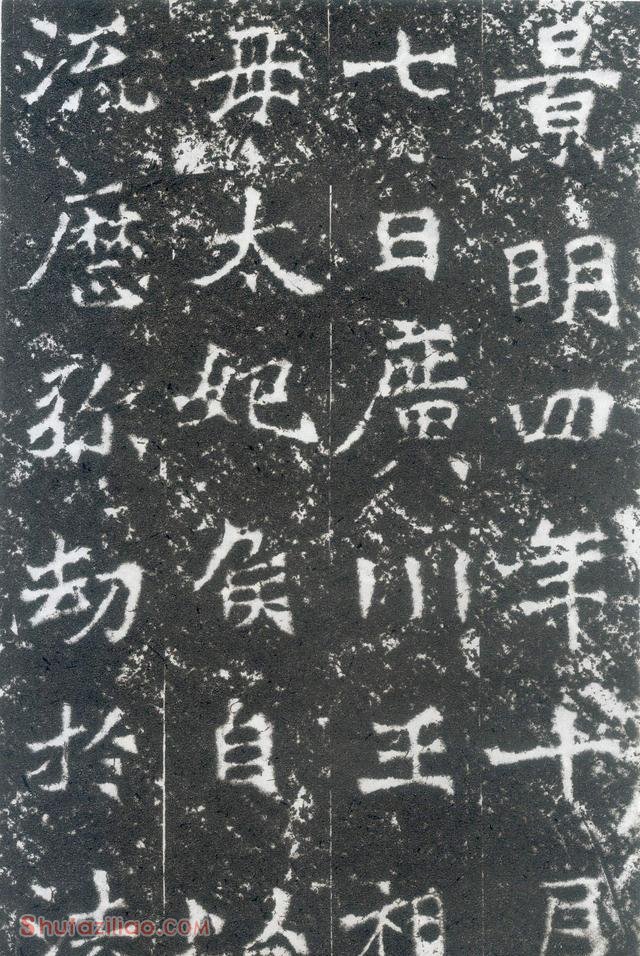 景明四年十月
七日廣川王祖
母太妃侯自以
流歷弥劫於法
Shufaziliao.com